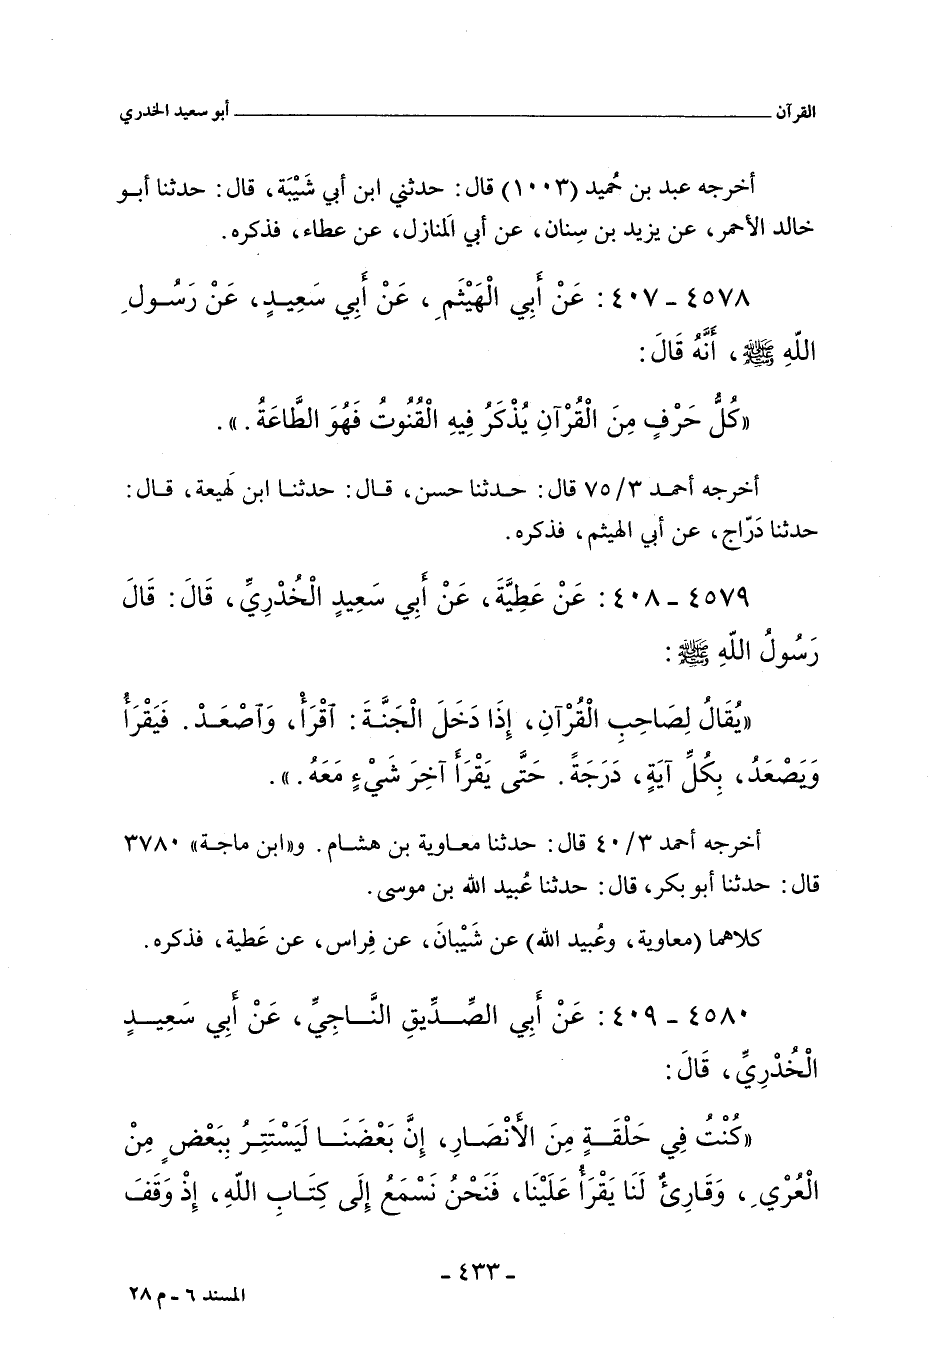 القرآن ــــــــــ أبو سعيد الخدري
أخرجه عبد بن حُميد (١٠٠٣) قال: حدثني ابن أبي شَيْبَة، قال: حدثنا أبو
خالد الأحمر، عن يزيد بن سِنان، عن أبي المَنازل، عن عطاء، فذكره.
٤٥٧٨ - ٤٠٧: عَنْ أَبِي الْهَيْثَمِ، عَنْ أَبِي سَعِيدٍ، عَنْ رَسُولِ
اللّهِ ﷺ، أَنَّهُ قَالَ:
«كُلُّ حَرْفٍ مِنَ الْقُرْآنِ يُذْكَرُ فِيهِ الْقُنُوتُ فَهُوَ الطَّاعَةُ.».
أخرجه أحمد ٧٥/٣ قال: حدثنا حسن، قال: حدثنا ابن لَهيعة، قال:
حدثنا دَرّاج، عن أبي الهيثم، فذكره.
٤٥٧٩ - ٤٠٨: عَنْ عَطِيَّةَ، عَنْ أَبِي سَعِيدٍ الْخُدْرِيِّ، قَالَ: قَالَ
رَسُولُ اللّهِ ﷺ:
«يُقَالُ لِصَاحِبِ الْقُرْآنِ، إِذَا دَخَلَ الْجَنَّةَ: ٱقْرَأْ، وَٱصْعَدْ. فَيَقْرَأُ
وَيَصْعَدُ، بِكُلِّ آيَةٍ، دَرَجَةً. حَتَّى يَقْرَأَ آخِرَ شَيْءٍ مَعَهُ.».
أخرجه أحمد ٤٠/٣ قال: حدثنا معاوية بن هشام. و«ابن ماجة» ٣٧٨٠
قال: حدثنا أبو بكر، قال: حدثنا عُبيد الله بن موسى.
كلاهما (معاوية، وعُبيد الله) عن شَيْبانَ، عن فِراس، عن عَطية، فذكره.
٤٥٨٠ - ٤٠٩: عَنْ أَبِي الصِّدِّيقِ النَّاجِيِّ، عَنْ أَبِي سَعِيدٍ
الْخُدْرِيِّ، قَالَ:
«كُنْتُ فِي حَلْقَةٍ مِنَ الْأَنْصَارِ، إِنَّ بَعْضَنَا لَيَسْتَتِرُ بِبَعْضٍ مِنْ
الْعُرْيِ، وَقَارِئٌ لَنَا يَقْرَأُ عَلَيْنَا، فَنَحْنُ نَسْمَعُ إِلَى كِتَابِ اللّهِ، إِذْ وَقَفَ
- ٤٣٣ -
المسند ٦ - م ٢٨